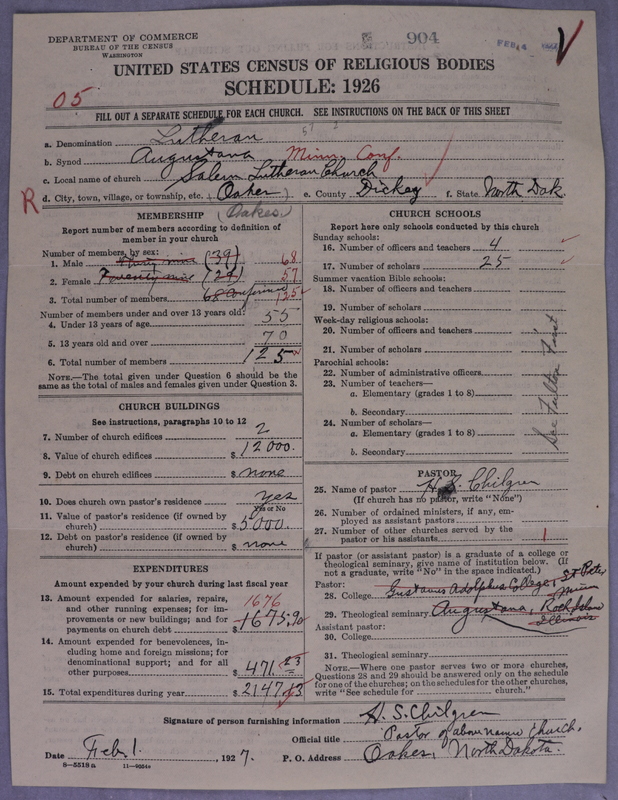 DEPARTMENT OF COMMERCE
BUREAU OF THE CENSUS
WASHINGTON
904
FEB 4
UNITED STATES CENSUS OF RELIGIOUS BODIES
SCHEDULE: 1926
05
FILL OUT A SEPARATE SCHEDULE FOR EACH CHURCH. SEE INSTRUCTIONS ON THE BACK OF THIS SHEET
a. Denomination Lutheran
b. Synod Augustana Minn. Conf.
c. Local name of church Salem Lutheran Church
R d. City, town, village, or township, etc. (Oakes) e. County Dickey f. State North Dak.
(Oakes)
MEMBERSHIP
Report number of members according to definition of
member in your church
Number of members, by sex:
1. Male (39) 68
2. Female (29) 57
3. Total number of members 68 confirmed 125
Number of members under and over 13 years old:
4. Under 13 years of age 55
5. 13 years old and over 70
6. Total number of members 125
NOTE.—The total given under Question 6 should be the
same as the total of males and females given under Question 3.
CHURCH BUILDINGS
See instructions, paragraphs 10 to 12
7. Number of church edifices 2
8. Value of church edifices $ 12000.
9. Debt on church edifices $ none
10. Does church own pastor's residence yes
Yes or No
11. Value of pastor's residence (if owned by
church) $ 5000.
12. Debt on pastor's residence (if owned by
church) $ none
EXPENDITURES
Amount expended by your church during last fiscal year
13. Amount expended for salaries, repairs,
and other running expenses; for im-
provements or new buildings; and for
payments on church debt $ 1675.90
1676
14. Amount expended for benevolences, in-
cluding home and foreign missions; for
denominational support; and for all
other purposes $ 471.23
15. Total expenditures during year $ 2147.13
CHURCH SCHOOLS
Report here only schools conducted by this church
Sunday schools:
16. Number of officers and teachers 4
17. Number of scholars 25
Summer vacation Bible schools:
18. Number of officers and teachers
19. Number of scholars
Week-day religious schools:
20. Number of officers and teachers
21. Number of scholars
Parochial schools:
22. Number of administrative officers
23. Number of teachers—
a. Elementary (grades 1 to 8)
b. Secondary
24. Number of scholars—
a. Elementary (grades 1 to 8)
b. Secondary
See
PASTOR
25. Name of pastor H. S. Chilgren
(If church has no pastor, write "None")
26. Number of ordained ministers, if any, em-
ployed as assistant pastors
27. Number of other churches served by the
pastor or his assistants 1
If pastor (or assistant pastor) is a graduate of a college or
theological seminary, give name of institution below. (If
not a graduate, write "No" in the space indicated.)
Pastor:
28. College Gustavus Adolphus College, St Peter
Minn
29. Theological seminary Augustana, Rock Island
Illinois
Assistant pastor:
30. College
31. Theological seminary
NOTE.—Where one pastor serves two or more churches,
Questions 28 and 29 should be answered only on the schedule
for one of the churches; on the schedules for the other churches,
write "See schedule for church."
Signature of person furnishing information H. S. Chilgren
Official title Pastor of above named church.
Date Feb. 1. 1927. P. O. Address Oakes, North Dakota.
8—5518a 11—9054